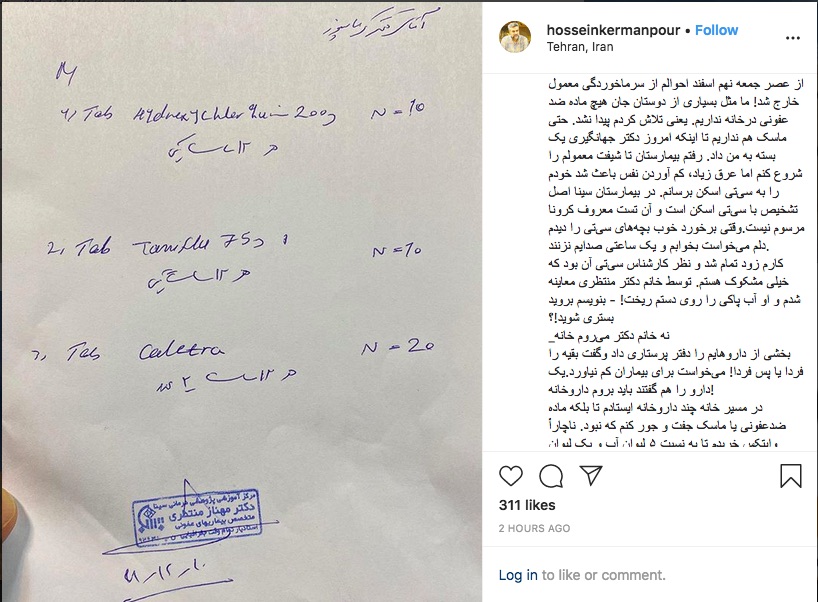 آقای دکتر کرمانپور
1) Tab Hydroxychloroquin 200g N = 10
هر ۱۲ ساعت یکی
2, Tab Tamiflu 75 N = 10
هر ۱۲ ساعت یکی
3, Tab Caletra N = 20
هر ۱۲ ساعت ۲ عدد
مرکز آموزشی پژوهشی درمانی سینا
دکتر مهناز منتظری
متخصص بیماریهای عفونی
hosseinkermanpour • Follow
Tehran, Iran
از عصر جمعه نهم اسفند احوالم از سرماخوردگی معمول
خارج شد! ما مثل بسیاری از دوستان جان هیچ ماده ضد
عفونی درخانه نداریم. یعنی تلاش کردم پیدا نشد. حتی
ماسک هم نداریم تا اینکه امروز دکتر جهانگیری یک
بسته به من داد. رفتم بیمارستان تا شیفت معمولم را
شروع کنم اما عرق زیاد، کم آوردن نفس باعث شد خودم
را به سی‌تی اسکن برسانم. در بیمارستان سینا اصل
تشخیص با سی‌تی اسکن است و آن تست معروف کرونا
مرسوم نیست.وقتی برخورد خوب بچه‌های سی‌تی را دیدم
دلم می‌خواست بخوابم و یک ساعتی صدایم نزنند.
کارم زود تمام شد و نظر کارشناس سی‌تی آن بود که
خیلی مشکوک هستم. توسط خانم دکتر منتظری معاینه
شدم و او آب پاکی را روی دستم ریخت! - بنویسم بروید
بستری شوید!؟
نه خانم دکتر می‌روم خانه_
بخشی از داروهایم را دفتر پرستاری داد وگفت بقیه را
فردا یا پس فردا! می‌خواست برای بیماران کم نیاورد.یک
دارو را هم گفتند باید بروم داروخانه!
در مسیر خانه چند داروخانه ایستادم تا بلکه ماده
ضدعفونی یا ماسک جفت و جور کنم که نبود. ناچاراً
وایتکس خریدم تا به نسبت ۵ لیوان آب و یک لیوان
311 likes
2 HOURS AGO
Log in to like or comment.